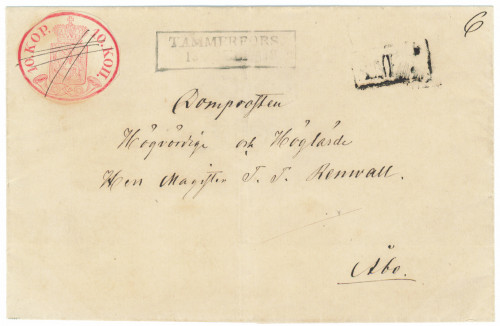 10 KOP. 10 КОП.
TAMMERFORS
6
Domprosten
Högvördige och Höglärde
Herr Magister T. T. Renvall.
Åbo.